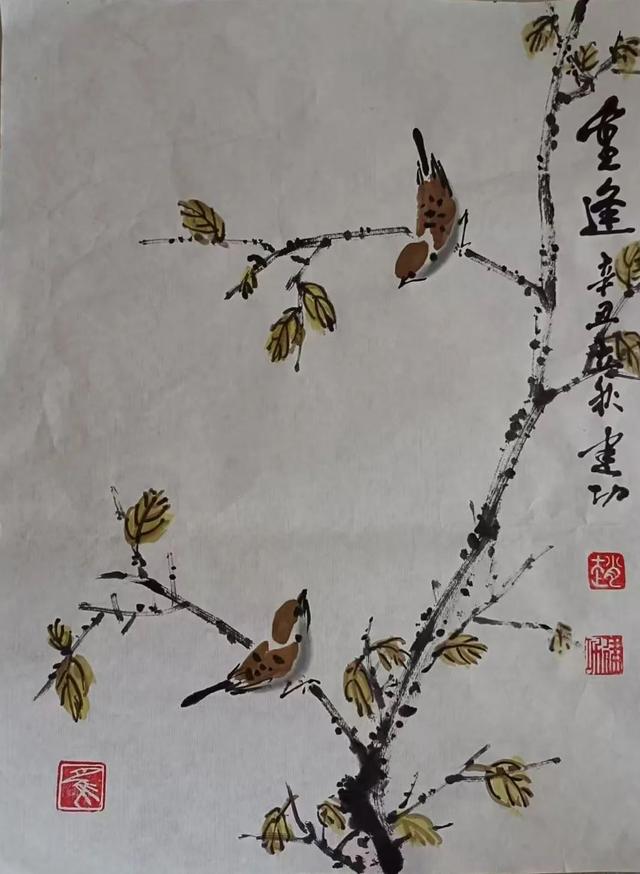 重逢 辛丑秋 建功
趙